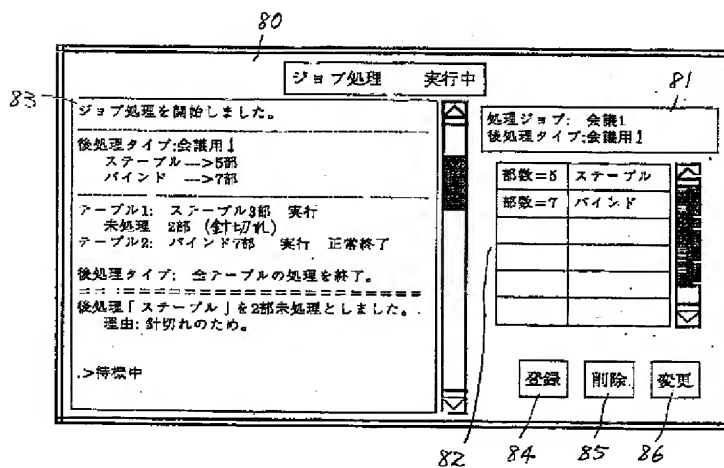 80
ジョブ処理 実行中
81
83
ジョブ処理を開始しました。
後処理タイプ:会議用1
ステープル-->5部
バインド -->7部
テーブル1: ステープル3部 実行
未処理 2部 (針切れ)
テーブル2: バインド7部 実行 正常終了
後処理タイプ: 全テーブルの処理を終了。
後処理「ステープル」を2部未処理としました。
理由: 針切れのため。
.>待機中
処理ジョブ: 会議1
後処理タイプ:会議用1
部数=5 ステープル
部数=7 バインド
登録 削除 変更
82 84 85 86